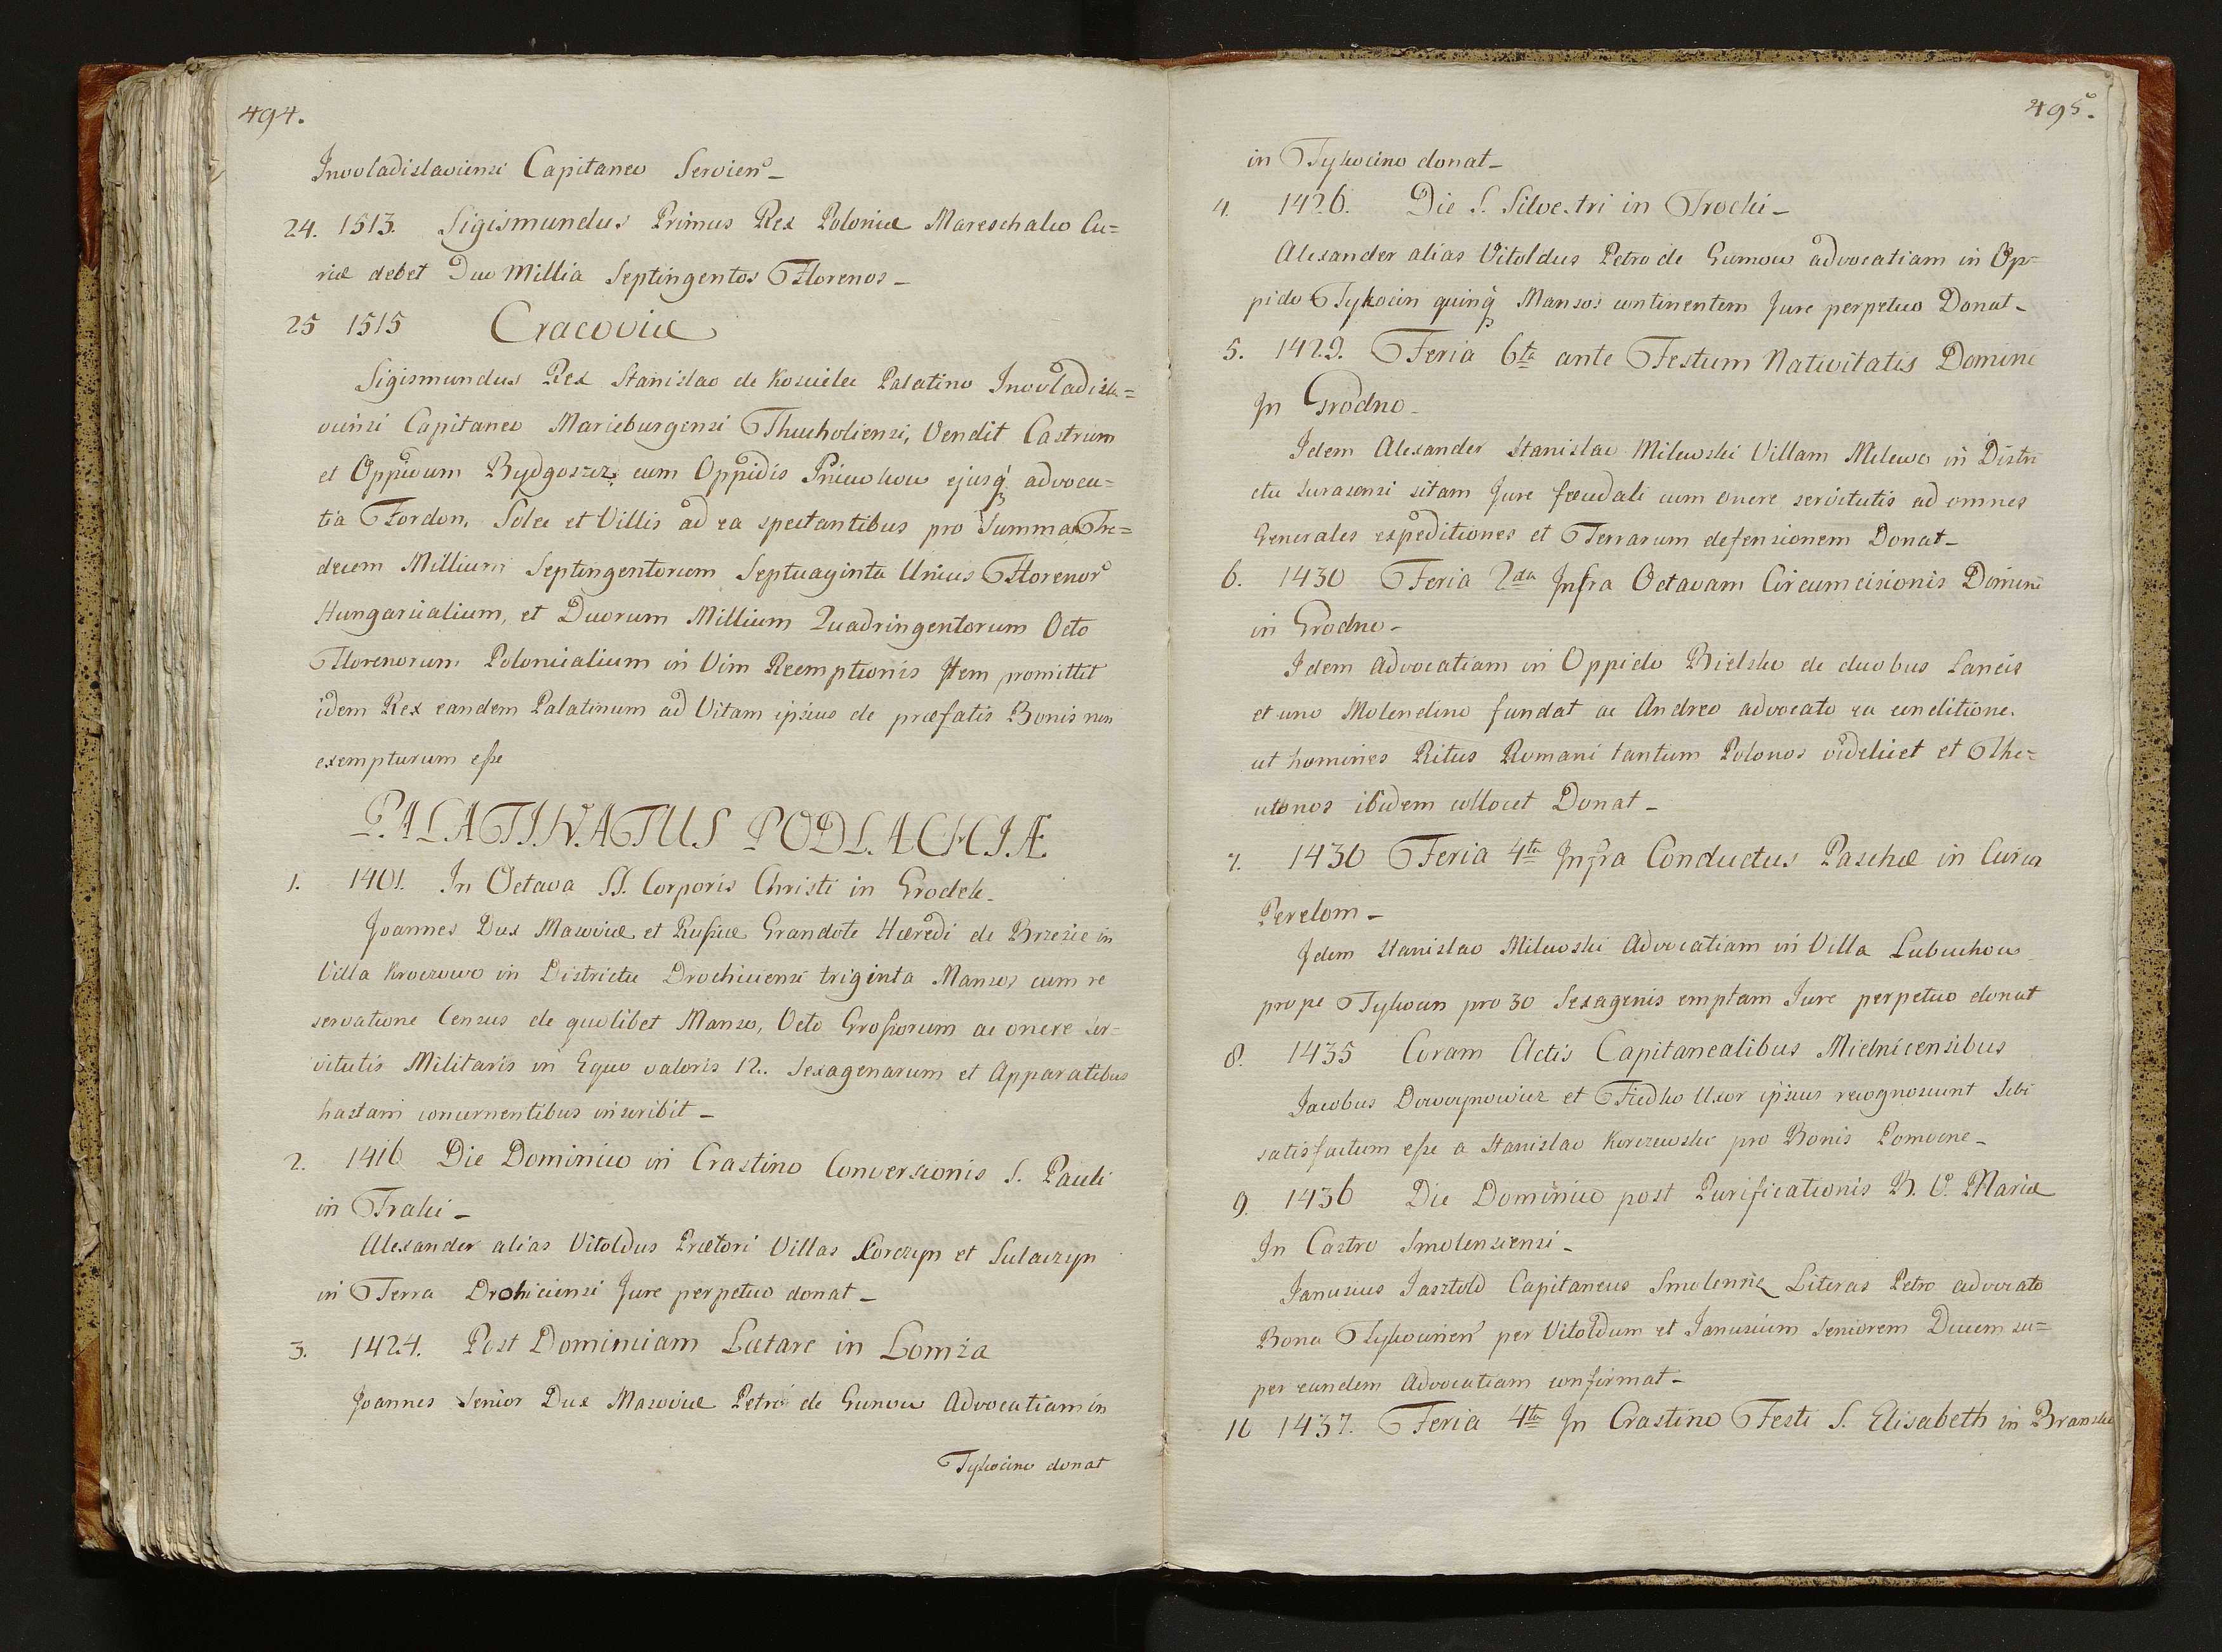 494.
Inovladislaviensi Capitaneo Servien̄ –
24. 1513. Sigismundus Primus Rex Poloniæ Mareschalco Cu=
riæ debet Duo Millia Septingentos Florenos –
25 1515 Cracoviæ
Sigismundus Rex Stanislao de Koscielec Palatino Inovladisla=
viensi Capitaneo Marieburgensi Thucholiensi, Vendit Castrum
et Oppidum Bydgoszcz cum Oppidis ejusq̃ advoca=
tia Fordon, Solec et Villis ad ea spectantibus pro Summa Tre=
decem Millium Septingentorum Septuaginta Unius Florenor̃
Hungaricalium, et Duorum Millium Quadringentorum Octo
Florenorum Polonicalium in Vim Reemptionis Item promittit
idem Rex eandem Palatinum ad Vitam ipsius de præfatis Bonis non
exempturum esse
PALATINATUS PODLACHIÆ
1. 1401. In Octava SS. Corporis Christi in Grodek –
Joannes Dux Masoviæ et Russiæ Grandote Hæredi de Brzezie in
Villa Kroczewo in Districtu Drohiciensi triginta Mansos cum re
servatione Census de quolibet Manso, Octo Grossorum ac onere Ser=
vitutis Militaris in Equo valoris 12. Sexagenarum et Apparatibus
hastam concernentibus inscribit –
2. 1416 Die Dominico in Crastino Conversionis S. Pauli
in Traki –
Alexander alias Vitoldus Prætori Villas Korczyn et Sulaczyn
in Terra Drohiciensi Jure perpetuo donat –
3. 1424. Post Dominicam Lætare in Lomza
Joannes Senior Dux Masoviæ Petro de Gumow Advocatiam in
Tykocino donat
495.
in Tykocino donat –
4. 1426. Die S. Silvestri in Trocki –
Alexander alias Vitoldus Petro de Gumow advocatiam in Op=
pido Tykocin quinq̃ Mansos continentem Jure perpetuo Donat –
5. 1429. Feria 6ta ante Festum Nativitatis Domini
In Grodno –
Idem Alexander Stanislao Milewski Villam Milewo in Distri
ctu Surasensi sitam Jure fœudali cum onere servitutis ad omnes
Generales expeditiones et Terrarum defensionem Donat –
6. 1430 Feria 2da Infra Octavam Circumcisionis Domini
in Grodno –
Idem advocatiam in Oppido Bielsko de duobus Laneis
et uno Molendino fundat ac Andreo advocato ea conditione
ut homines Ritus Romani tantum Polonos videlicet et The=
utonos ibidem collocet Donat –
7. 1430 Feria 4ta Infra Conductus Paschæ in Curia
Perelom –
Idem Stanislao Milewski Advocatiam in Villa Lubuchow
prope Tykocin pro 30 Sexagenis emptam Jure perpetuo donat
8. 1435 Coram Actis Capitanealibus Mielnicensibus
Jacobus et Fiedko Uxor ipsius recognoscunt Sibi
satisfactum esse a Stanislao Korczewski pro Bonis Pomocne –
9. 1436 Die Dominico post Purificationis B. V. Mariæ
In Castro Smolensiensi –
Janusius Jasztold Capitaneus Smolensie Literas Petro advocato
Bona Tykocinen̄ per Vitoldum et Janusium Seniorem Ducem su=
per eandem Advocatiam confirmat –
10 1437. Feria 4ta In Crastino Festi S. Elisabeth in Bransko